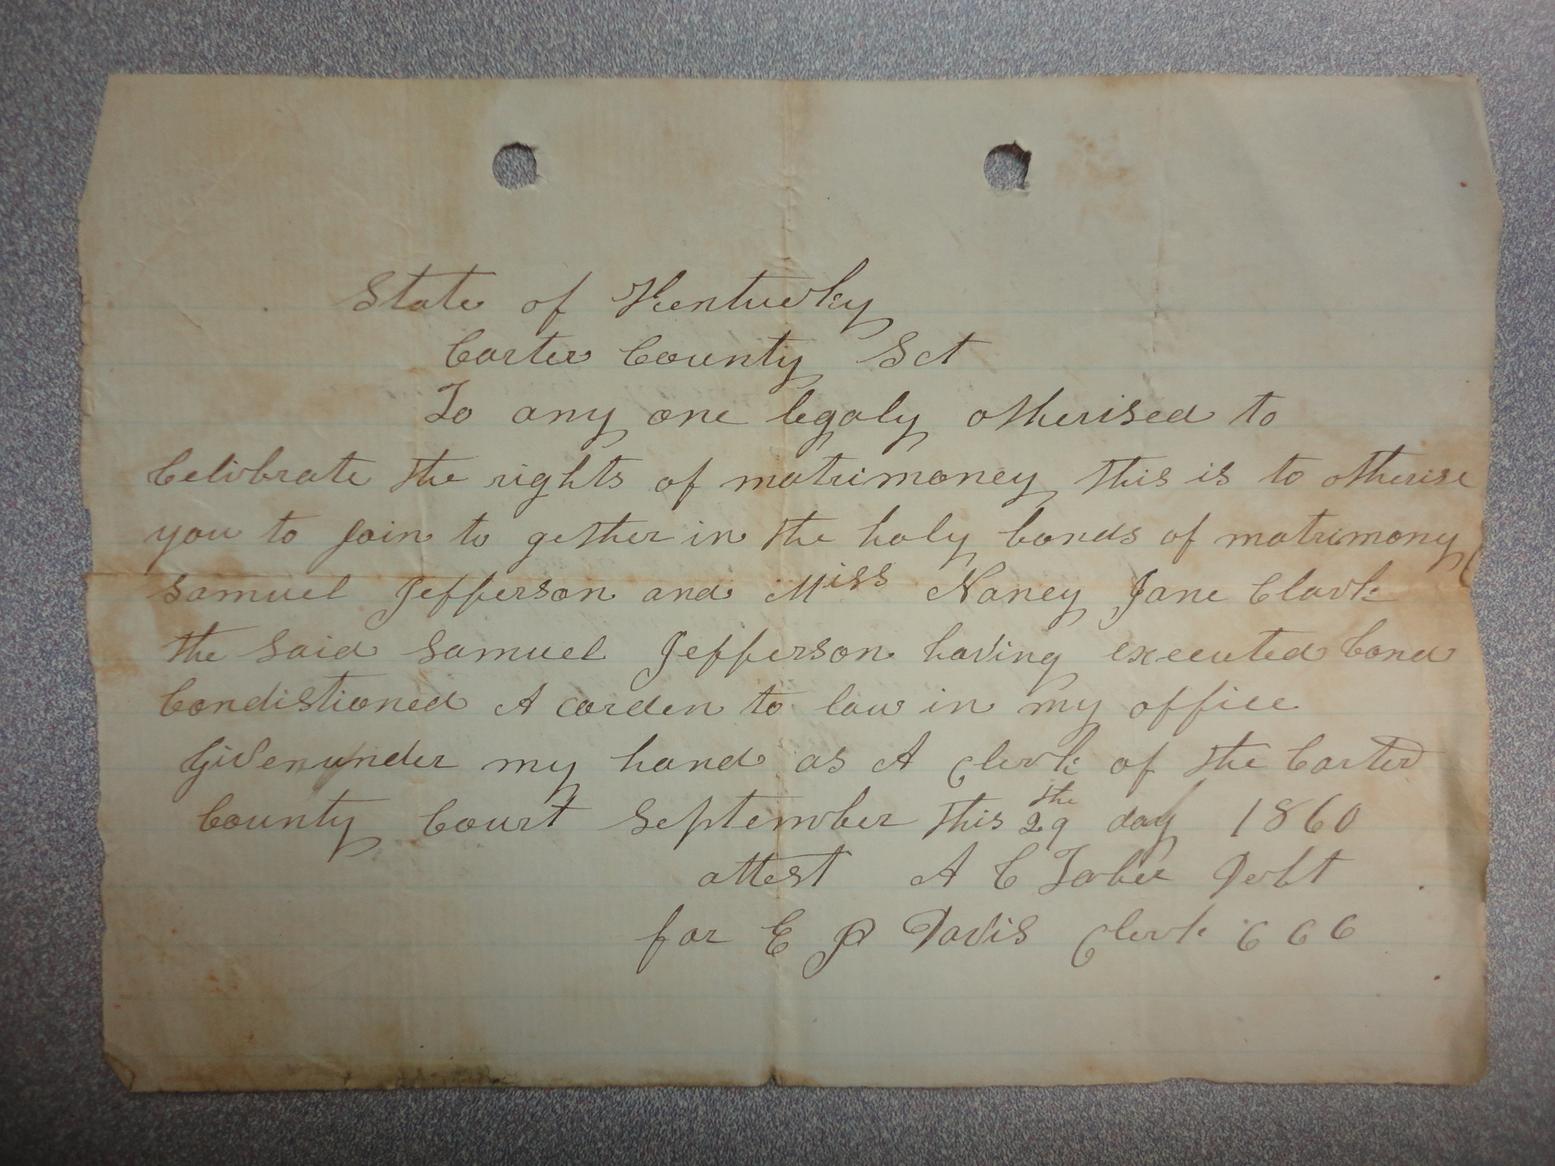 State of Kentucky
Carter County Sct
To any one legaly otherised to
Celibrate the rights of matrimoney this is to otherise
you to join to gether in the holy bonds of matrimony
Samuel Jefferson and Miss Nancy Jane Clark
the said Samuel Jefferson having executed bond
Condistioned A carden to law in my office
Given under my hand as A Clerk of the Carter
County Court September this 29 the day 1860
attest A C
for E P Davis Clerk C C C